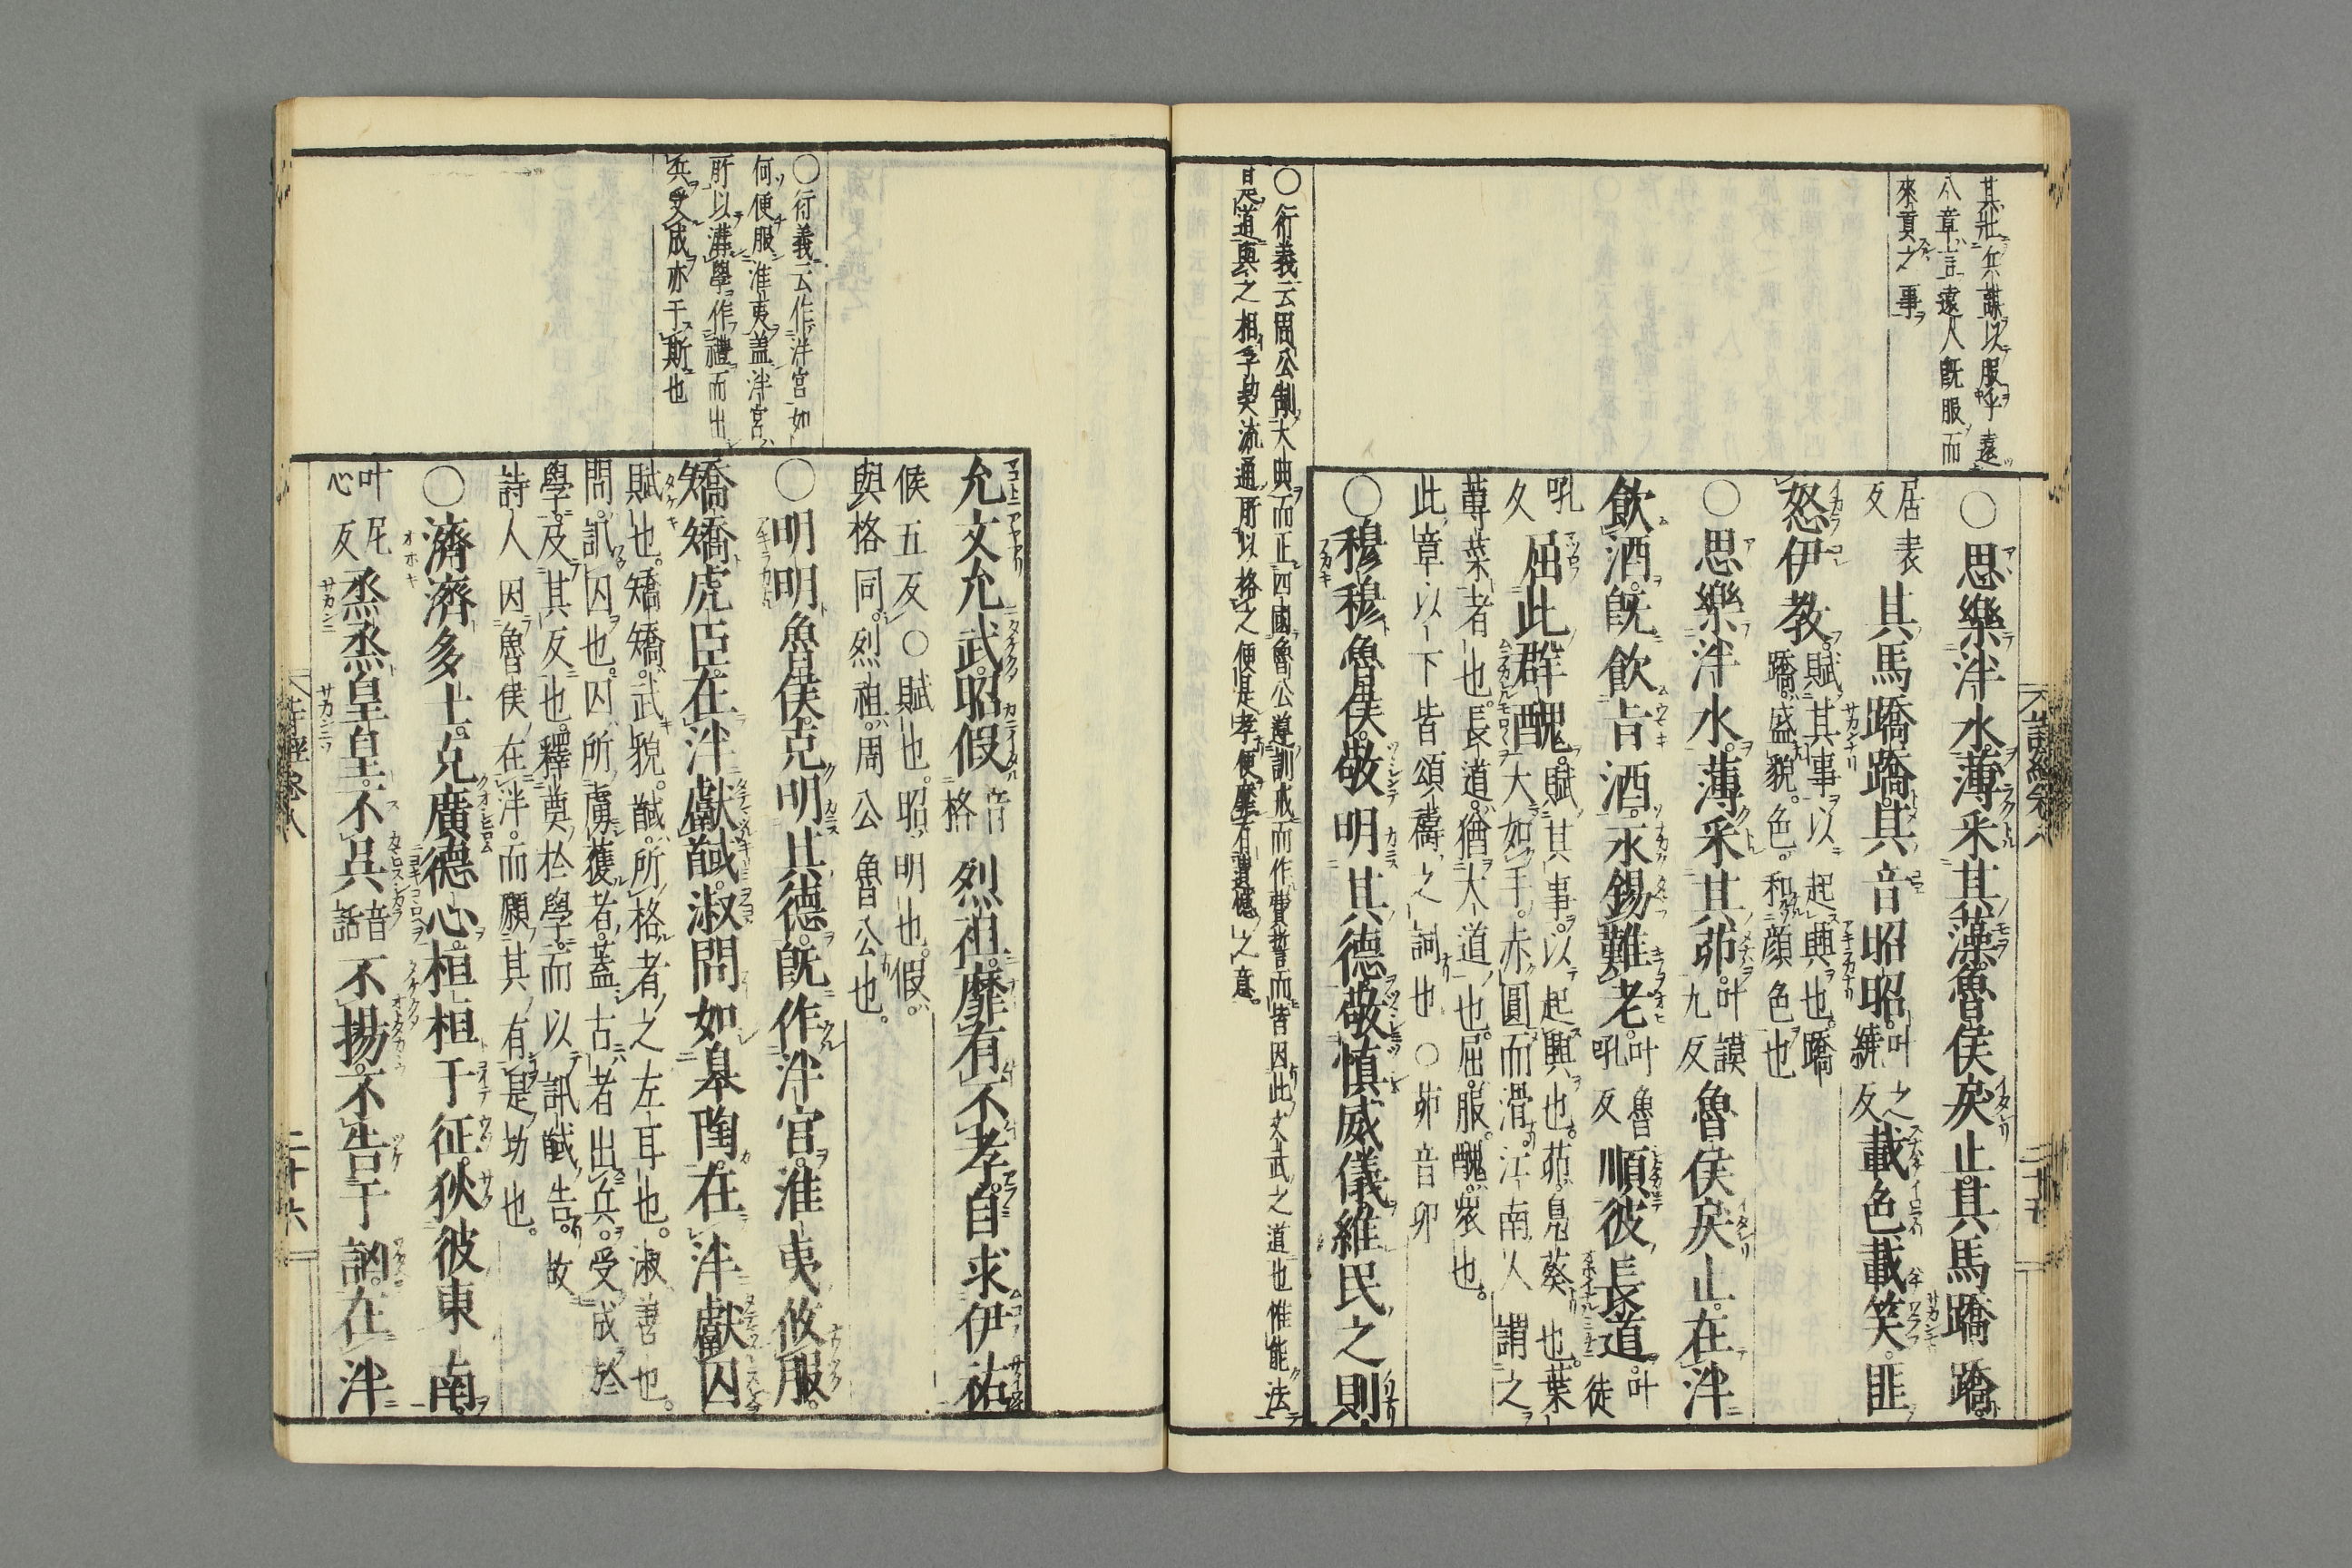 其壯兵謀以服乎遠
八章言遠人既服而
來貢之事
○思樂泮水薄采其藻魯侯戾止其馬蹻蹻
居表反其馬蹻蹻其音昭昭叶之繞反載色載笑匪
怒伊教賦其事以起興也蹻蹻盛貌色和顔色也
○思樂泮水薄采其茆叶謨九反魯侯戾止在泮
飲酒既飲旨酒永錫難老叶魯吼反順彼長道叶徒
吼反屈此群醜賦其事以起興也茆鳧葵也葉
大如手赤圓而滑江南人謂之
蓴菜者也長道猶大道也屈服醜衆也
此章以下皆頌禱之詞也○茆音卯
○穆穆魯侯敬明其德敬慎威儀維民之則
○衍義云周公制大典而正四國魯公遵訓戒而作費誓而皆因此文武之道也惟能法
是道與之相孚契流通所以格之便是孝便靡有
之意
允文允武昭假音格烈祖靡有不孝自求伊祜
候五反○賦也昭明也假
與格同烈祖周公魯公也
○衍義云作泮宮如
何便服淮夷盖泮宮
所以講學作禮而出
兵受成亦于斯也
○明明魯侯克明其德既作泮宮淮夷攸服
矯矯虎臣在泮獻馘淑問如皐陶在泮獻囚
賦也矯矯武貌馘所格者之左耳也淑善也
問訊囚也囚所虜獲者蓋古者出兵受成於
學及其反也釋奠於學而以訊馘告故
詩人因魯侯在泮而願其有是功也
○濟濟多士克廣德心桓桓于征狄彼東南
叶尼心反烝烝皇皇不吳音話不揚不告于訩在泮
詩經卷八
二十五
詩經卷八
二十六